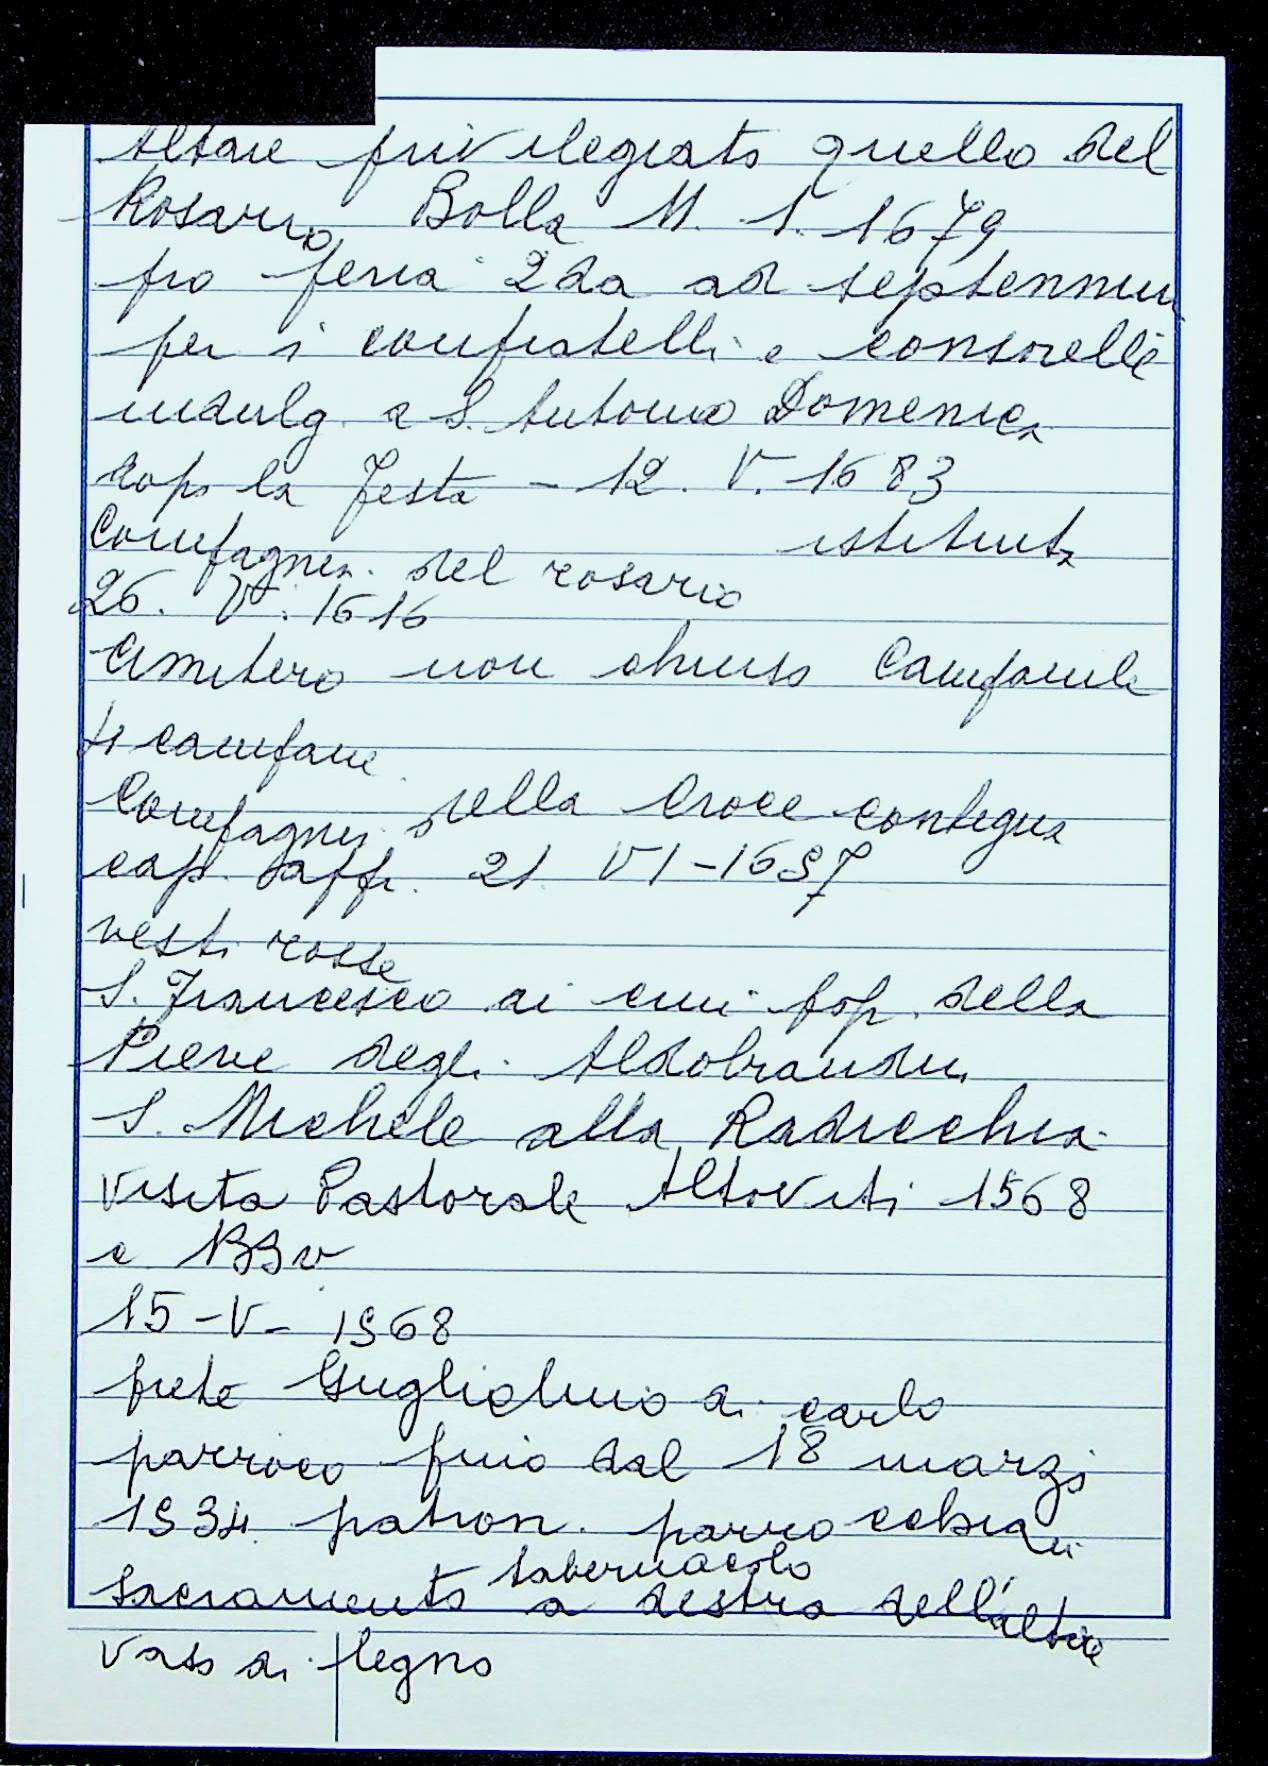 Altare privilegiato quello del
Rosario Bolla M. S. 1679
pro feria 2da ad septennium
per i confratelli e consorelle
indulg. a S. Antonio Domenica
dopo la festa - 12. V. 1683
Compagnia del rosario istituita
26. V. 1616
Cimitero non chiuso Campanile
4 campane
Compagnia della Croce contigua
cap. 21 VI - 1697
vesti rosse
S. Francesco ai pop. della
Pieve degli Aldobrandini
S. Michele alla Radicchia
Visita Pastorale Altoviti 1568
e
15 - V - 1968
prete Guglielmo di carlo
parroco fino dal 18 marzo
1934 patron. parrocchiani
Sacramento tabernacolo a destra dell'altare
vaso di legno